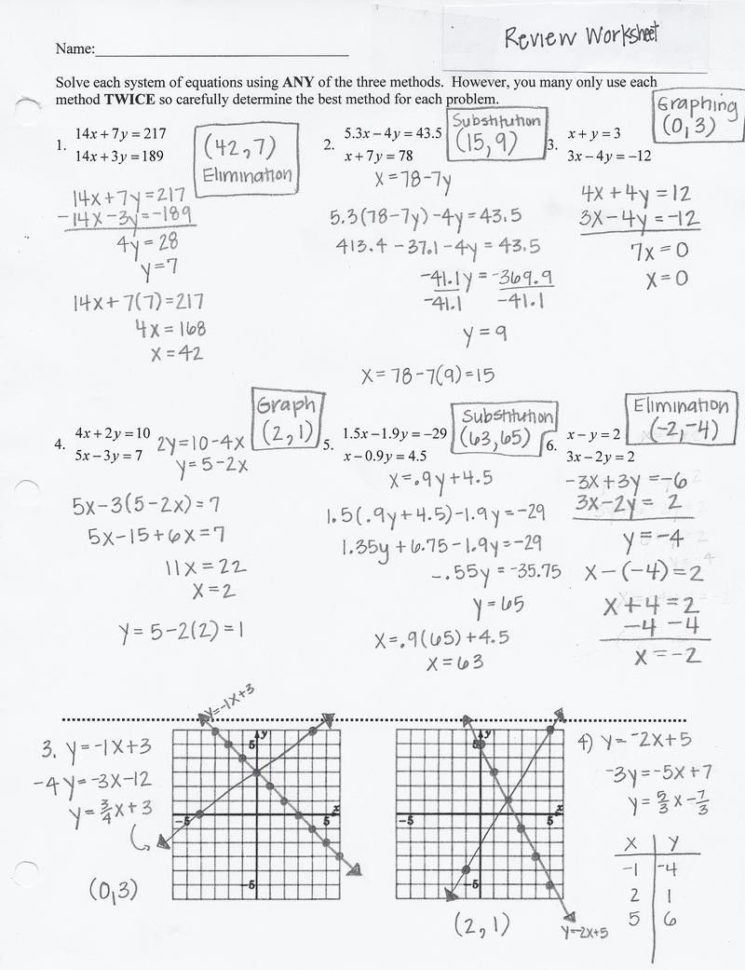 Review Worksheet
Name:
Solve each system of equations using ANY of the three methods. However, you many only use each
method TWICE so carefully determine the best method for each problem.
1. 14x + 7y = 217
14x + 3y = 189
(42,7)
Elimination
14x+7y=217
-14x-3y=-189
4y=28
y=7
14x+7(7)=217
4x=168
x=42
2. 5.3x – 4y = 43.5
x + 7y = 78
Substitution
(15,9)
x=78-7y
5.3(78-7y)-4y=43.5
413.4-37.1-4y=43.5
-41.1y=-369.9
-41.1 -41.1
y=9
x=78-7(9)=15
3. x + y = 3
3x – 4y = –12
Graphing
(0,3)
4x+4y=12
3x-4y=-12
7x=0
x=0
4. 4x + 2y = 10
5x – 3y = 7
Graph
(2,1)
2y=10-4x
y=5-2x
5x-3(5-2x)=7
5x-15+6x=7
11x=22
x=2
y=5-2(2)=1
5. 1.5x – 1.9y = –29
x – 0.9y = 4.5
Substitution
(63,65)
x=.9y+4.5
1.5(.9y+4.5)-1.9y=-29
1.35y+6.75-1.9y=-29
-.55y=-35.75
y=65
x=.9(65)+4.5
x=63
6. x – y = 2
3x – 2y = 2
Elimination
(-2,-4)
-3x+3y=-6
3x-2y=2
y=-4
x-(-4)=2
x+4=2
-4 -4
x=-2
3. y=-1x+3
-4y=-3x-12
y=3/4x+3
(0,3)
y=-1x+3
y
5
x
-5
5
-5
y
5
x
-5
5
-5
(2,1)
y=-2x+5
4) y=-2x+5
-3y=-5x+7
y=5/3x-7/3
x y
-1 -4
2 1
5 6